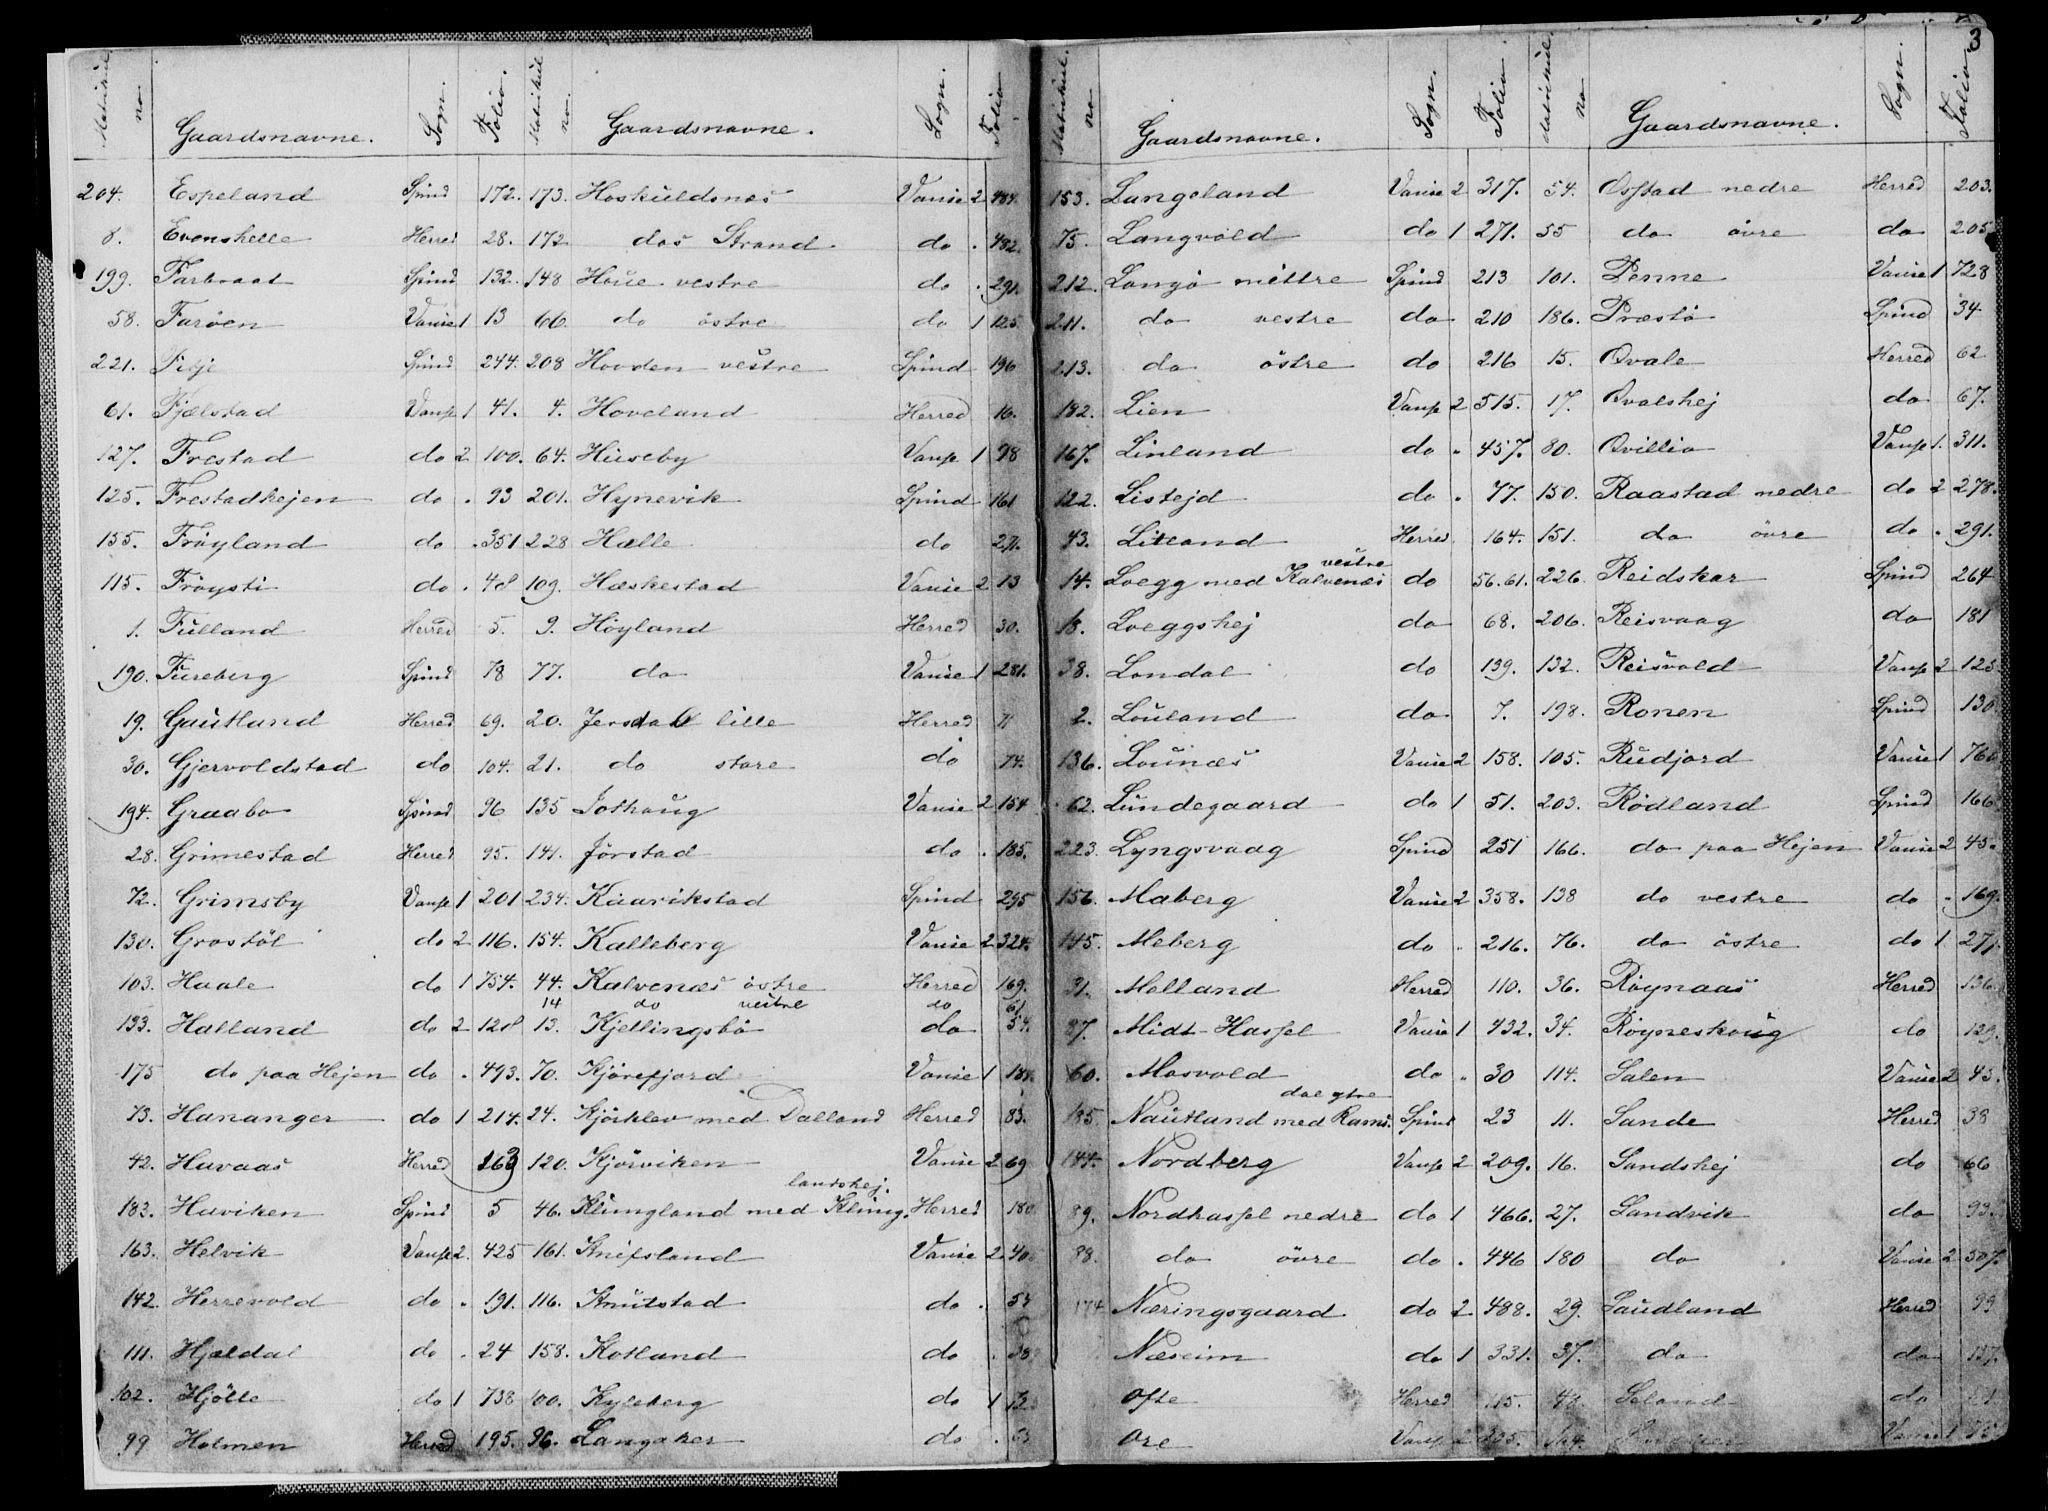 3
Matrikul no Gaardsnavne. Sogn. Folio. Matrikul no. Gaardsnavne. Sogn. Folio
204. Espeland Spind 172. 173. Hoskuldsnes Vanse 2 484.
8. Evenshelle Herred 28. 172 dos Strand do . 482.
199. Farbraat Spind 132. 148 Houe vestre do . 291.
58. Faröen Vanse 1 13 66 do östre do 1 125
221. Fidje Spind 244. 208 Hovden vestre Spind 196
61. Fjælstad Vanse 1 41. 4. Hoveland Herred 16.
127. Frestad do 2 100. 64. Huseby Vanse 1 98
125. Frestadhejen do . 93 201. Hynevik Spind 161
155. Fröyland do . 351 228 Hælle do 271.
115. Fröysti do . 48 109. Hæskestad Vanse 2 13
1. Fulland Herred 5. 9. Höyland Herred 30.
190. Fureberg Spind 78 77. do Vanse 1 281.
19. Gautland Herred 69. 20. Jersdal lille Herred 71
30. Gjervoldstad do 104. 21. do store do 74.
194. Graabo Spind 96 135 Jothaug Vanse 2 154
28. Grimestad Herred 95. 141. Jörstad do . 185.
72. Grimsby Vanse 1 201 234. Kaarikstad Spind 295
130. Grostöl do 2 116. 154. Kalleberg Vanse 2 324.
103. Haale do 1 754. 44. Kalvenæs östre Herred 169.
14 do vestre do 61.
133. Halland do 2 128 13. Kjetlingsbö do 54.
175 do paa Hejen do . 493. 70. Kjörefjord Vanse 1 181.
73. Hananger do 1 214. 24. Kjörklev med Dalland Herred 83.
42. Havaas Herred 163 120. Kjörviken Vanse 2 69
landshej.
183. Haviken Spind 5 46. Klungland med Klung. Herred 180
163. Helvik Vanse 2. 425 161. Knifsland Vanse 2 40
142. Herrevold do . 191. 116. Knutstad do . 53
111. Hjældal do . 24 158. Kotland do . 38
102. Hjölle do 1 738 100. Kyleberg do 1 72
99 Holmen Herred 195. 96. Langaker do .
Matrikul. no Gaardsnavne. Sogn. Folio Matrikul. no Gaardsnavne. Sogn. Folio
153. Langeland Vanse 2 317. 54. Osstad nedre Herred 203.
75. Langvold do 1 271. 55 do övre do 205
212. Langö mittre Spind 213 101. Penne Vanse 1 728
211. do vestre do 210 186. Præstö Spind 34
213. do östre do 216 15. Qvale Herred 62
182. Lien Vanse 2 515. 17. Qvalshej do 67.
167. Linland do . 457. 80. Qvillio Vanse 1. 311.
122. Listejd do . 77. 150. Raastad nedre do 2 278.
43. Litland Herred 164. 151. do övre do . 291.
vestre
14. Loegg med Kalvenæs do 56. 61. 226. Reidskar Spind 264
18. Loeggshej do 68. 206. Reisvaag do 181
38. Londal do 139. 132. Reisvold Vanse 2 123
2. Louland do 7. 198. Ronen Spind 130
136. Lounæs Vanse 2 158. 105. Rudjord Vanse 1 760
62. Lundegaard do 1 51. 203. Rödland Spind 166
223. Lyngsvaag Spind 251 166. do paa Hejen Vanse 2 45.
156. Maberg Vanse 2 358. 138 do vestre do . 169.
145. Meberg do . 216. 76. do östre do 1 27.
31. Molland Herred 110. 36. Röynaas Herred 136
87. Midt-Hassel Vanse 1 432. 34. Röyneskoug do 129.
60. Mosvold do . 30 114. Salen Vanse 2 43.
dal ytre
185. Nautland med Rams. Spind 23 11. Sande Herred 38
144. Nordberg Vanse 2 209. 16. Sandshej do 66
89. Nordhassel nedre do 1 466. 27. Sandvik do 93.
88. do övre do . 446 180 do Vanse 2 507.
174 Næringsgaard do 2 488. 29. Saudland Herred 99
Næseim do 1 331. 37. do do 137.
Ofte Herred 115. 48. Seland do
Ore Vanse 2 Vanse 1